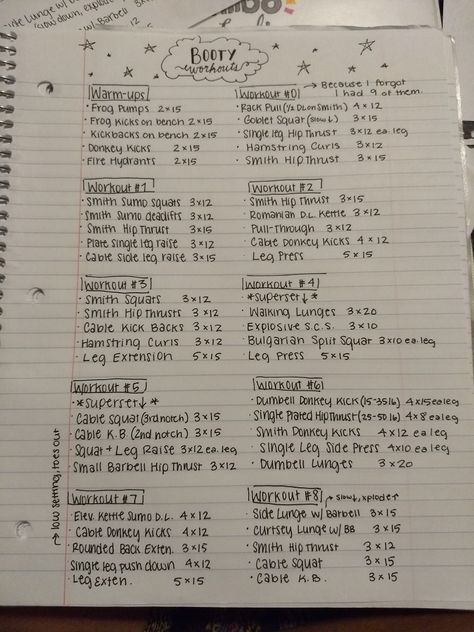 Side Lunge w/
(slow down, explode
w/ Barbell
BOOTY
workouts
→ Because I forgot
I had 9 of them.
Warm-ups
• Frog Pumps 2×15
• Frog Kicks on bench 2×15
• Kickbacks on bench 2×15
• Donkey Kicks 2×15
• Fire Hydrants 2×15
Workout #0!
• Rack Pull (½ DL on Smith) 4×12
• Goblet Squat (slow↓) 3×15
• Single leg Hip Thrust 3×12 ea. leg
• Hamstring Curls 3×12
• Smith Hip Thrust 3×15
Workout #1
• Smith Sumo Squats 3×12
• Smith Sumo deadlifts 3×12
• Smith Hip Thrust 3×15
• Plate single leg raise 3×12
• Cable side leg raise 3×15
Workout #2
• Smith Hip Thrust 3×15
• Romanian D.L. Kettle 3×12
• Pull-Through 3×12
• Cable Donkey Kicks 4×12
• Leg Press 5×15
Workout #3
• Smith Squats 3×12
• Smith Hip Thrusts 3×12
• Cable Kick Backs 3×12
• Hamstring Curls 3×12
• Leg Extension 5×15
Workout #4
• *superset↓*
• Walking Lunges 3×20
• Explosive S.C.S. 3×10
• Bulgarian Split Squat 3×10 ea. leg
• Leg Press 5×15
Workout #5
• *superset↓*
• Cable Squat (3rd notch) 3×15
• Cable K.B. (2nd notch) 3×15
• Squat + Leg Raise 3×12 ea. leg
• Small Barbell Hip Thrust 3×12
→ low setting, toes out
Workout #6
• Dumbell Donkey Kick (15-35lb) 4×15 ea leg
• Single Plated Hip Thrust (25-50lb) 4×8 ea leg
• Smith Donkey Kicks 4×12 ea leg
• Single Leg Side Press 4×10 ea leg
• Dumbell Lunges 3×20
Workout #7
• Elev. Kettle Sumo D.L. 4×12
• Cable Donkey Kicks 4×12
• Rounded Back Exten. 3×15
• Single leg push down 4×12
• Leg Exten. 5×15
Workout #8
→ slow↓, xplode↑
• Side Lunge w/ Barbell 3×15
• Curtsey Lunge w/ BB 3×15
• Smith Hip Thrust 3×12
• Cable Squat 3×15
• Cable K.B. 3×15